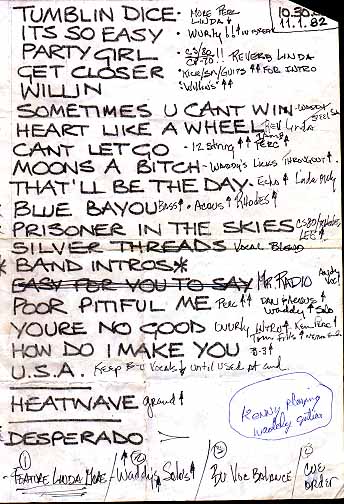 10.30.
11.1.82
TUMBLIN DICE - MORE PERC LINDA ↓
ITS SO EASY • WURLY !!↑
PARTY GIRL - CS/80 CP-70 !! REVERB LINDA
GET CLOSER • KICK/SN/GUITS ↑↑ FOR INTRO
WILLIN
SOMETIMES U CANT WIN - WADDY STEEL
HEART LIKE A WHEEL REV Linda
CANT LET GO - 12 String ↑↑ PERC ↑
MOONS A BITCH - WADDY'S LICKS THROUGHOUT ↑
THAT'LL BE THE DAY - Echo ↑ Linda
BLUE BAYOU BASS ↑ • ACOUS ↑ RHODES ↑
PRISONER IN THE SKIES CS80/RHODES
SILVER THREADS VOCAL Blend
* BAND INTROS *
EASY FOR YOU TO SAY MR. RADIO
POOR PITIFUL ME PERC ↑↑ DAN ACOUS ↑ Waddy ↑ Solo
YOURE NO GOOD WURLY INTRO ↑
HOW DO I MAKE YOU B-3 ↑
U.S.A. Keep B-U Vocals until
HEATNAVE grand ↑
DESPERADO
KENNY playing
waddy guitar
① FEATURE LINDA MORE
② Waddy's Solo's ↑
③ BU Voc BALANCE
CUE
Order